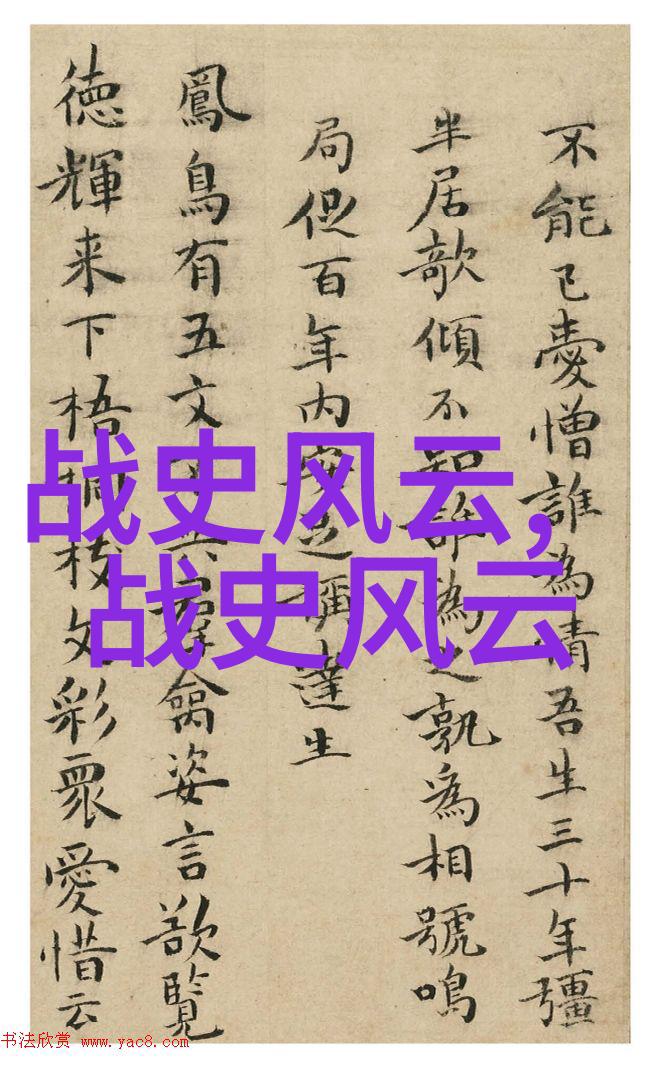 不能已愛憎誰為情吾生三十年彊
半居欹傾不知為之孰為相號鳴
局促百年内安達生
鳳鳥有五文禽姿言欲覽
徳輝来下梧桐枝文彩衆愛惜云
战史风云，
战史风云
书法欣赏 www.yac8.com